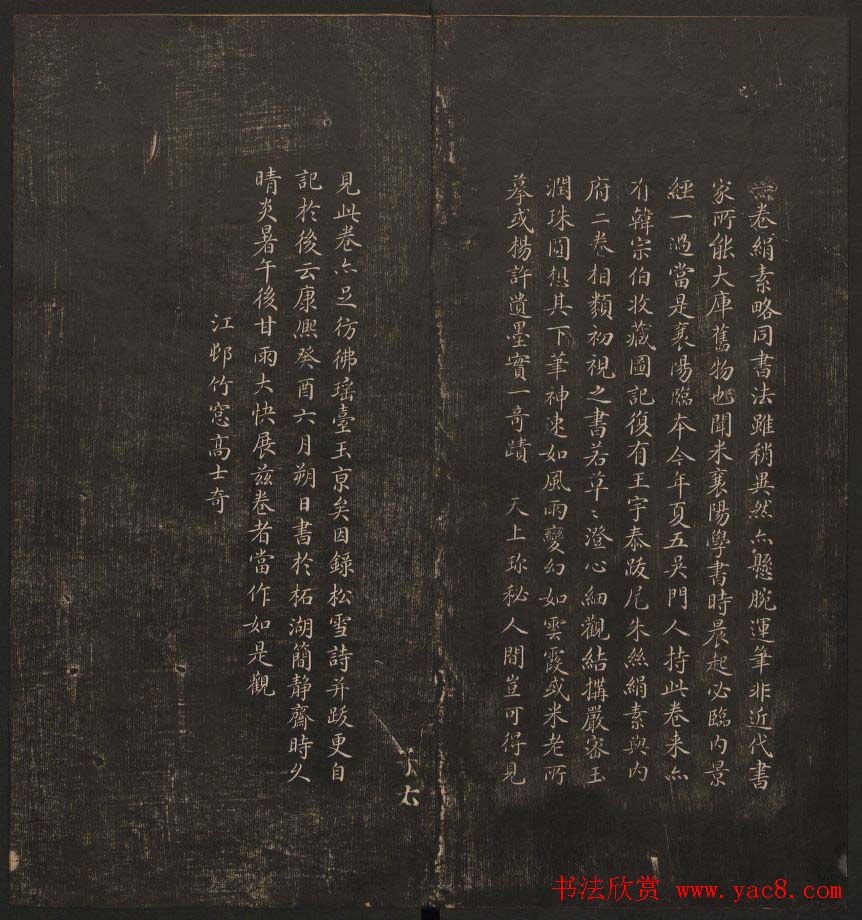 卷絹素略同書法雖稍異然亦懸腕運筆非近代書
家所能大庫舊物也聞米襄陽學書時晨起必臨內景
經一過當是襄陽臨本今年夏五吳門人持此卷来亦
有韓宗伯收藏圖記復有王宇泰跋尾朱絲絹素與内
府二卷相類初視之書若草〻澄心細觀結搆嚴密玉
潤珠圓想其下筆神速如風雨變幻如雲霞或米老所
摹或楊許遺墨實一奇蹟　天上珎秘人間豈可得見
見此卷亦足彷彿瑶臺玉京矣因錄松雪詩并跋更自
記於後云康熙癸酉六月朔日書於柘湖簡静齋時久
晴炎暑午後甘雨大快展兹卷者當作如是觀
江邨竹窓高士奇
十六
书法欣赏 www.yac8.com